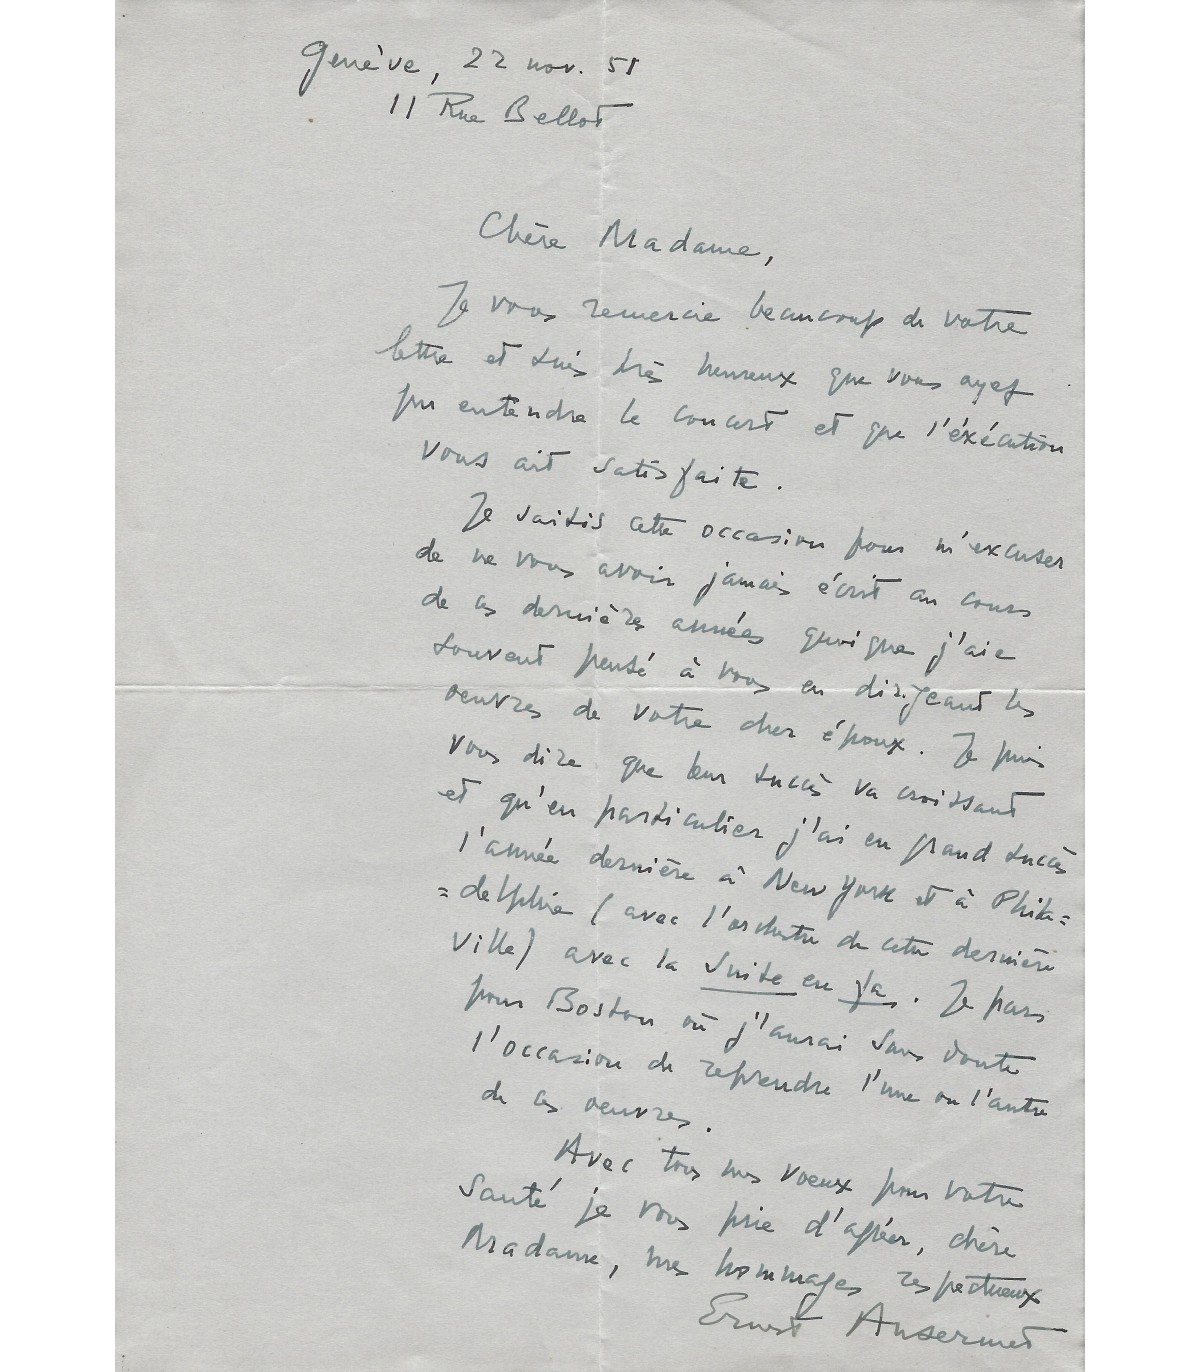 Genève, 22 nov. 51
11 Rue Bellot
Chère Madame,
Je vous remercie beaucoup de votre
lettre et suis très heureux que vous ayez
pu entendre le concert et que l'éxécution
vous ait satisfaite.
Je saisis cette occasion pour m'excuser
de ne vous avoir jamais écrit au cours
de ces dernières années quoique j'aie
souvent pensé à vous en dirigeant les
oeuvres de votre cher époux. Je puis
vous dire que leur succès va croissant
et qu'en particulier j'ai eu grand succès
l'année dernière à New York et à Phila=
=delphie (avec l'orchestre de cette dernière
ville) avec la Suite en fa. Je pars
pour Boston où j'aurai sans doute
l'occasion de reprendre l'une ou l'autre
de ces oeuvres.
Avec tous mes voeux pour votre
santé je vous prie d'agréer, chère
Madame, mes hommages respectueux
Ernest Ansermet